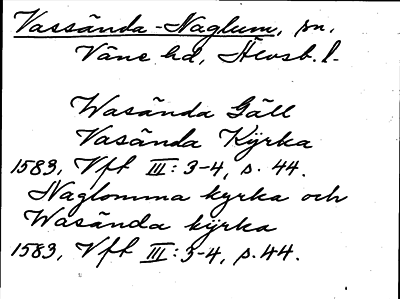 Vassända-Naglum, sn,
Väne hd, Älvsb. l.
Wasända Gäll
Vasända Kyrka
1583, Vft III: 3-4, s. 44.
Naglomma kyrka och
Wasända kyrka
1583, Vft III: 3-4, s. 44.